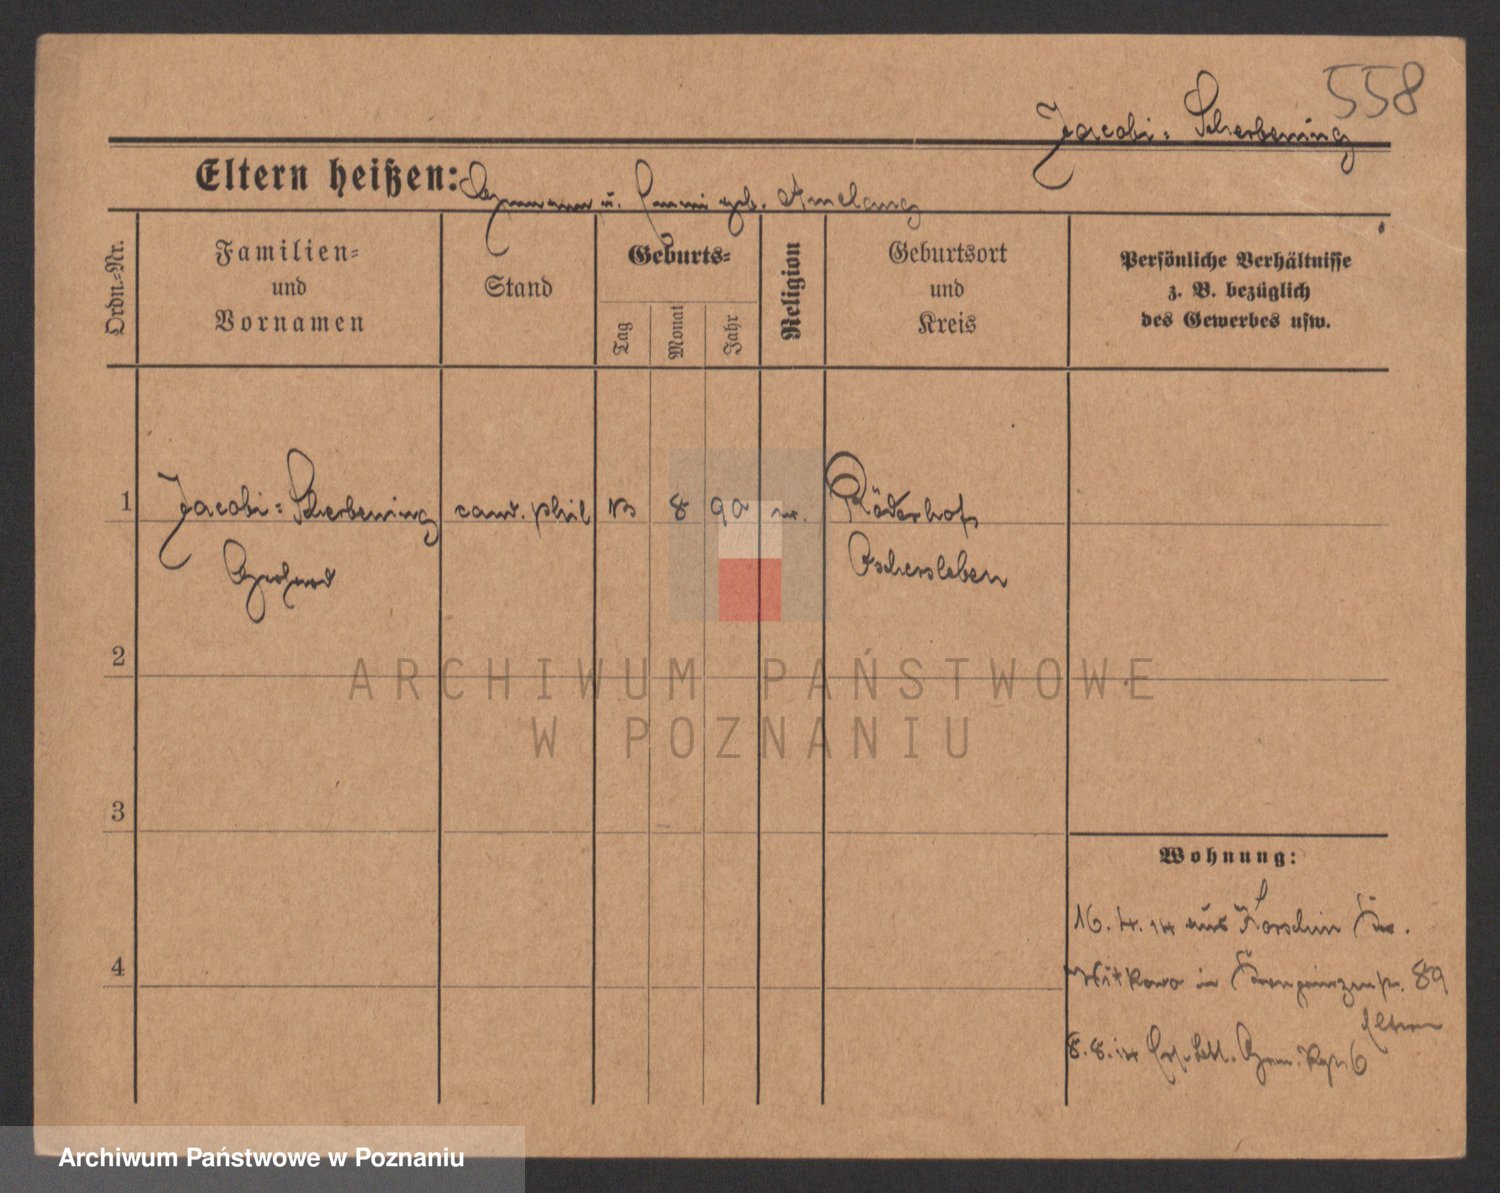 558
Jacobi= Scherbening
Eltern heißen: Hermann u. Emmi geb. Amelang
Ordn.=Nr.
Familien=
und
Vornamen
Stand
Geburts=
Tag
Monat
Jahr
Religion
Geburtsort
und
Kreis
Persönliche Verhältnisse
z. B. bezüglich
des Gewerbes usw.
1
Jacobi= Scherbening
Gerhard
cand. phil
13
8
90
ev.
Röderhof
Oschersleben
2
3
4
Wohnung:
16. 4. 14 aus Korschin Kr.
Witkowo in Kronprinzenstr. 89
Eltern
8. 8. 14 Gren. Rgt. 6
ARCHIWUM PAŃSTWOWE
W POZNANIU
Archiwum Państwowe w Poznaniu